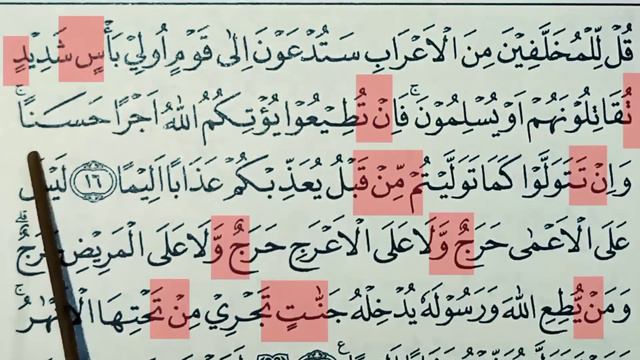 قُلْ لِّلْمُخَلَّفِيْنَ مِنَ الْاَعْرَابِ سَتُدْعَوْنَ اِلٰى قَوْمٍ اُولِيْ بَاْسٍ شَدِيْدٍ
تُقَاتِلُوْنَهُمْ اَوْ يُسْلِمُوْنَ ۚ فَاِنْ تُطِيْعُوْا يُؤْتِكُمُ اللّٰهُ اَجْرًا حَسَنًا ۚ
وَاِنْ تَتَوَلَّوْا كَمَا تَوَلَّيْتُمْ مِّنْ قَبْلُ يُعَذِّبْكُمْ عَذَابًا اَلِيْمًا ۝١٦ لَيْسَ
عَلَى الْاَعْمٰى حَرَجٌ وَّلَا عَلَى الْاَعْرَجِ حَرَجٌ وَّلَا عَلَى الْمَرِيْضِ حَرَجٌ ۗ
وَمَنْ يُّطِعِ اللّٰهَ وَرَسُوْلَهٗ يُدْخِلْهُ جَنّٰتٍ تَجْرِيْ مِنْ تَحْتِهَا الْاَنْهٰرُ ۚ